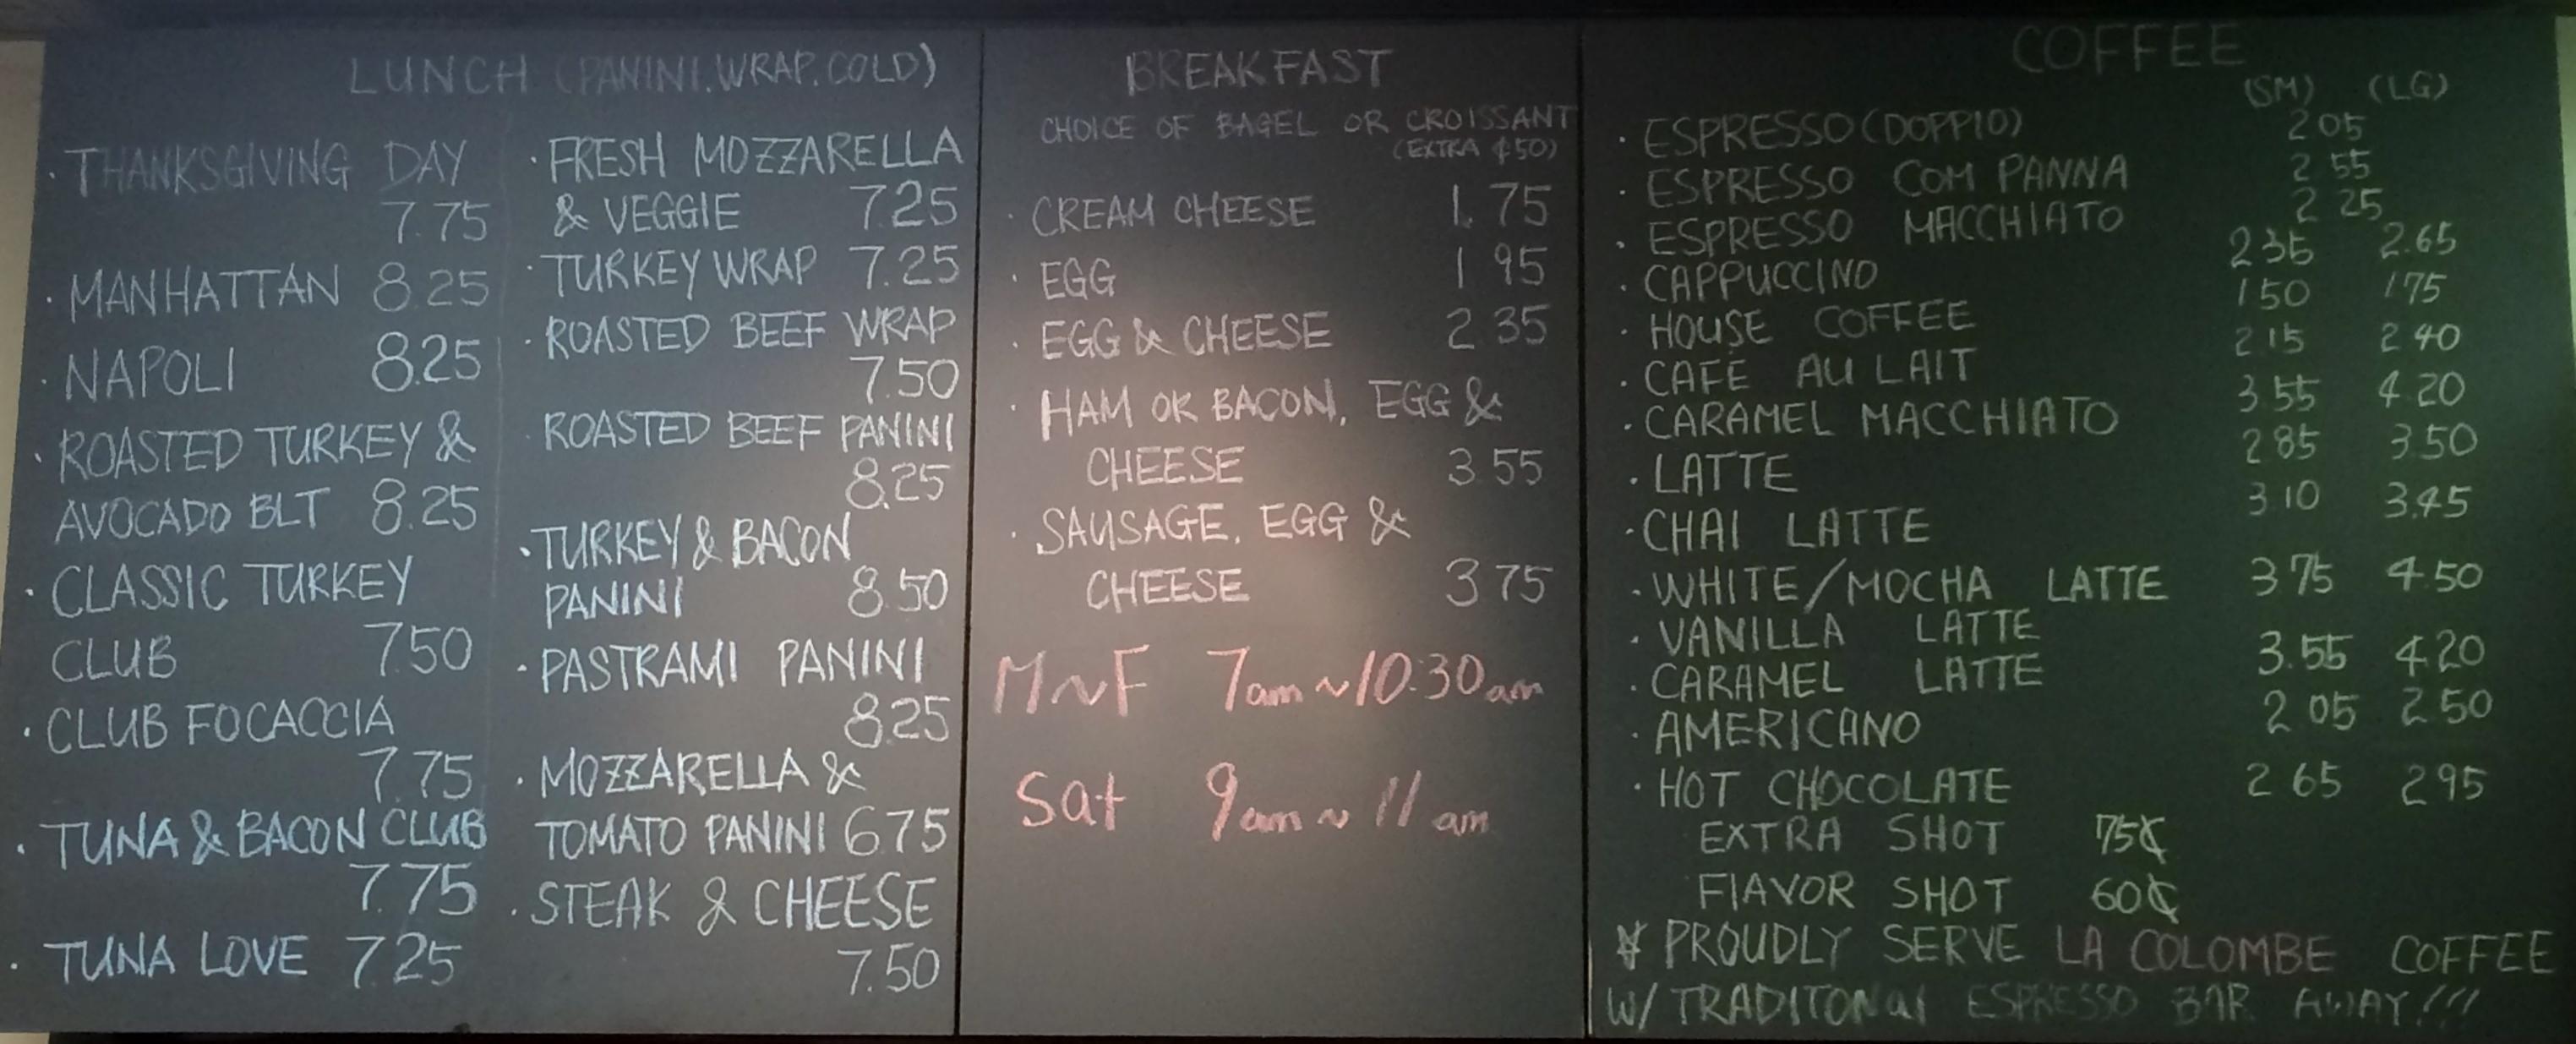 LUNCH (PANINI.WRAP.COLD)
· THANKSGIVING DAY
7.75
· MANHATTAN 8.25
· NAPOLI 8.25
· ROASTED TURKEY &
AVOCADO BLT 8.25
· CLASSIC TURKEY
CLUB 7.50
· CLUB FOCACCIA
7.75
· TUNA & BACON CLUB
7.75
· TUNA LOVE 7.25
· FRESH MOZZARELLA
& VEGGIE 7.25
· TURKEY WRAP 7.25
· ROASTED BEEF WRAP
7.50
· ROASTED BEEF PANINI
8.25
· TURKEY & BACON
PANINI 8.50
· PASTRAMI PANINI
8.25
· MOZZARELLA &
TOMATO PANINI 6.75
· STEAK & CHEESE
7.50
BREAKFAST
CHOICE OF BAGEL OR CROISSANT
(EXTRA ¢50)
· CREAM CHEESE 1.75
· EGG 1 95
· EGG & CHEESE 2 35
· HAM OR BACON, EGG &
CHEESE 3 55
· SAUSAGE, EGG &
CHEESE 3 75
M~F 7am~10:30am
Sat 9am~11am
COFFEE
(SM) (LG)
· ESPRESSO (DOPPIO) 2 05
· ESPRESSO COM PANNA 2 55
· ESPRESSO MACCHIATO 2 25
· CAPPUCCINO 2 35 2.65
· HOUSE COFFEE 1 50 1 75
· CAFÉ AU LAIT 2 15 2 40
· CARAMEL MACCHIATO 3.55 4 20
· LATTE 2 85 3.50
· CHAI LATTE 3.10 3.45
· WHITE/MOCHA LATTE 3 75 4.50
· VANILLA LATTE
· CARAMEL LATTE 3.55 4.20
· AMERICANO 2 05 2 50
· HOT CHOCOLATE 2 65 2 95
EXTRA SHOT 75¢
FlAVOR SHOT 60¢
* PROUDLY SERVE LA COLOMBE COFFEE
W/ TRADITONal ESPRESSO BAR AWAY!!!